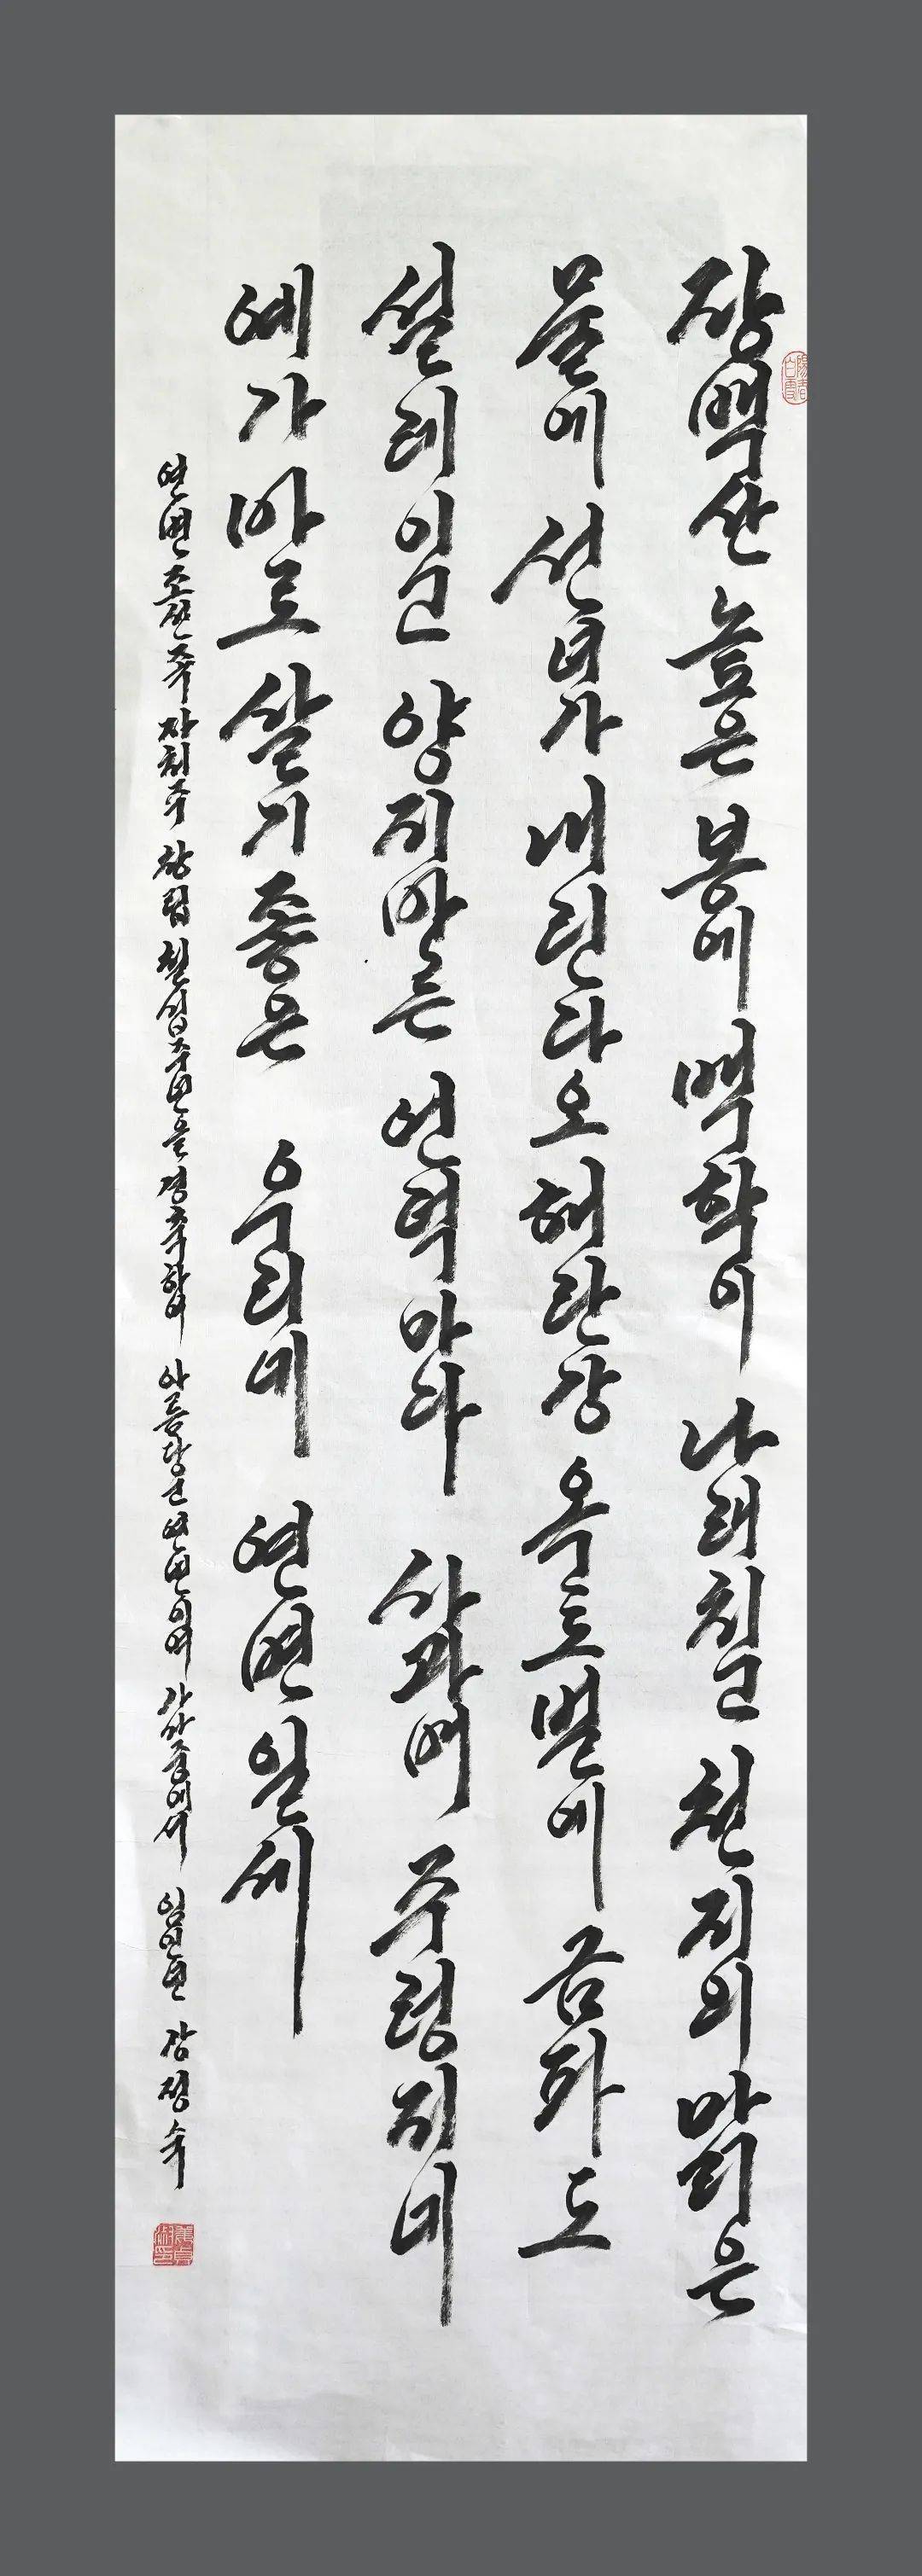 장백산 높은 봉에 백학이 나래치고 천지의 맑은
물에 선녀가 내린다오 해란강 옥토벌에 금파도
설레이고 양지바른 언덕마다 사과배 주렁지네
예가 바로 살기 좋은 우리네 연변일세
연변조선족자치주 창립 칠십주년을 경축하며 아름다운 연변이여 가사중에서 임인년 강정숙
陽春白雪
姜貞淑印